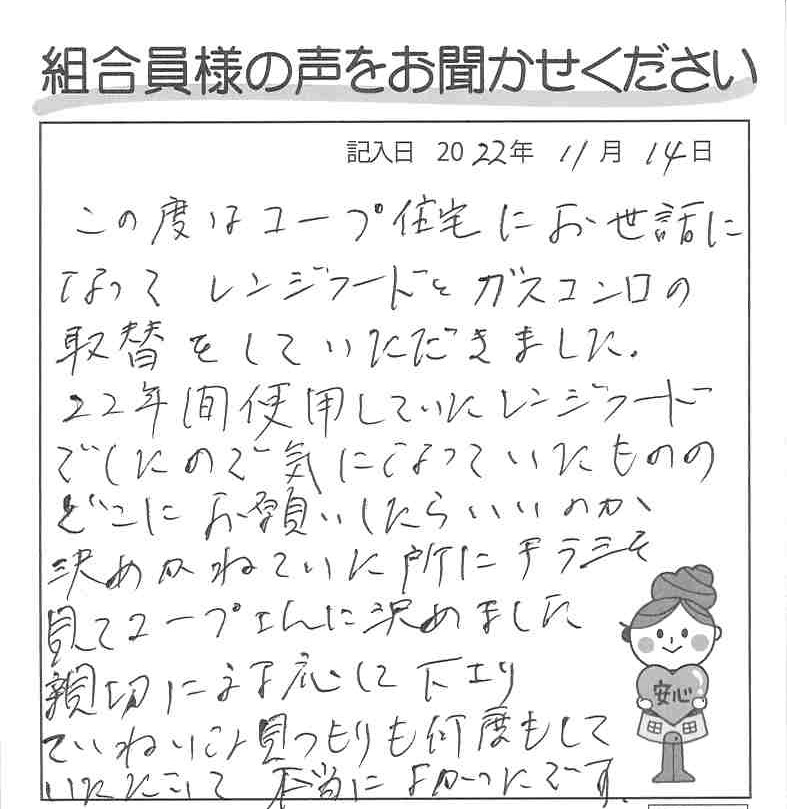 組合員様の声をお聞かせください
記入日 2022年 11月 14日
この度はコープ住宅にお世話に
なって レンジフードと ガスコンロの
取替をしていただきました.
22年間使用していたレンジフード
でしたので気になっていたものの
どこにお願いしたらいいのか、
決めかねていた所にチラシを
見てコープさんに決めました
親切に対応して下さり
ていねいに見つもりも何度もして
いただいて 本当によかったです.
安心